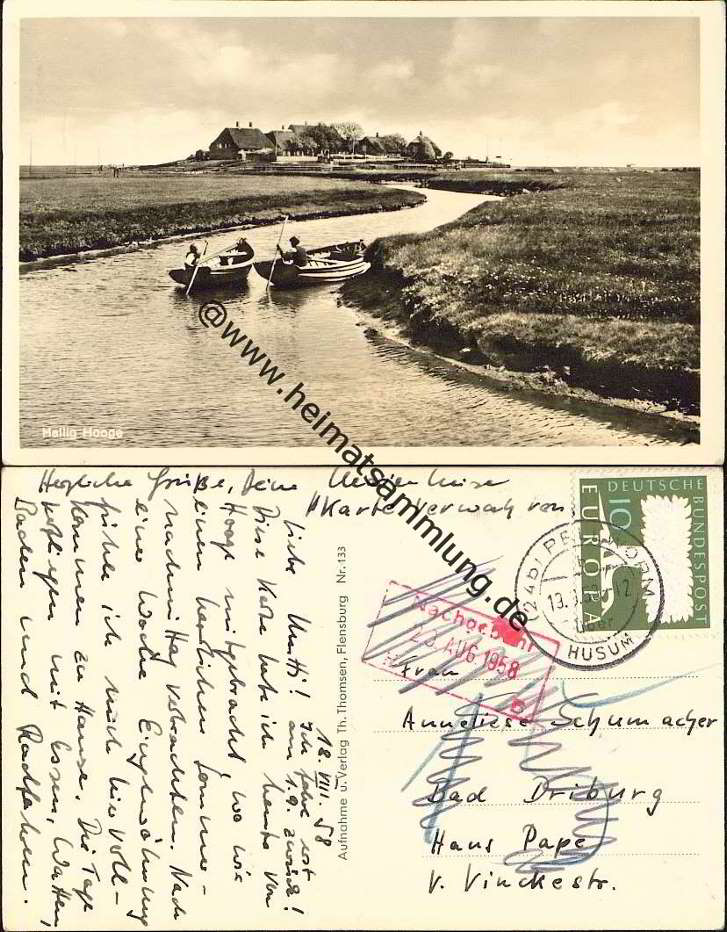 Hallig Hooge
@www.heimatsammlung.de
Herzliche Grüße, Deine
Karte verwahren
18. VIII. 58
Ich fahre erst
am 1.9. zurück!
Liebe Mutti!
Diese Karte habe ich heute von
Hooge mitgebracht, wo wir
einen herrlichen Sommer-
nachmittag verbrachten. Nach
eine Woche Eingewöhnung
fühle ich mich hier voll-
kommen zu Hause. Die Tage
verfliegen mit Essen, Watten,
Baden und Radfahren.
Aufnahme u. Verlag Th. Thomsen, Flensburg Nr. 133
DEUTSCHE
BUNDESPOST
10
EUROPA
(24b) PELLWORM
über
HUSUM
Nachgebühr
AUG 1958
Frau
Anneliese Schumacher
Bad Driburg
Haus Pape
v. Vinckestr.